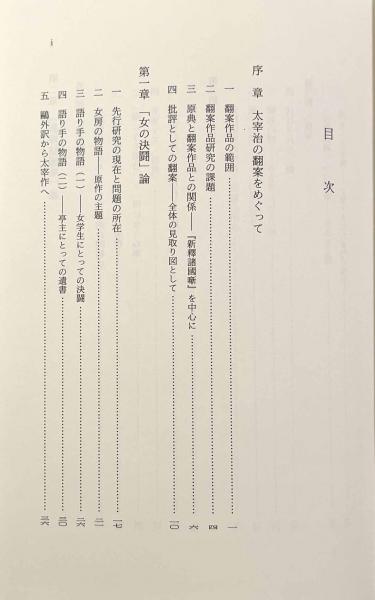 目次
序章　太宰治の翻案をめぐって
一　翻案作品の範囲……………一
二　翻案作品研究の課題……………四
三　原典と翻案作品との関係——『新釋諸國噺』を中心に……………六
四　批評としての翻案——全体の見取り図として……………一〇
第一章　「女の決闘」論
一　先行研究の現在と問題の所在……………一七
二　女房の物語——原作の主題……………二一
三　語り手の物語（一）——女学生にとっての決闘……………二六
四　語り手の物語（二）——亭主にとっての遺書……………三〇
五　鷗外訳から太宰作へ……………三六
i